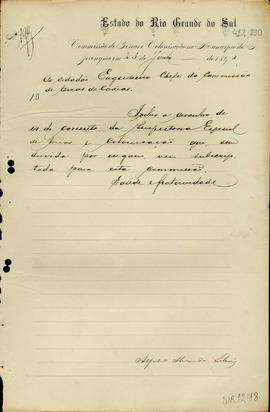 Estado do Rio Grande do Sul
412, 290
Commissão de Terras e Colonisação no Municipio de S.
Jaguary 23 de Junho de 189
Ao cidadão Engenheiro Chefe da Commissão
de Terras de Caxias.
10
Junto a circular de
11 do corrente da Inspectoria Especial
de Terras e Colonisação que, sem
duvida por engano veio subscrip
tada para esta commissão.
Saude e fraternidade
DIR1248